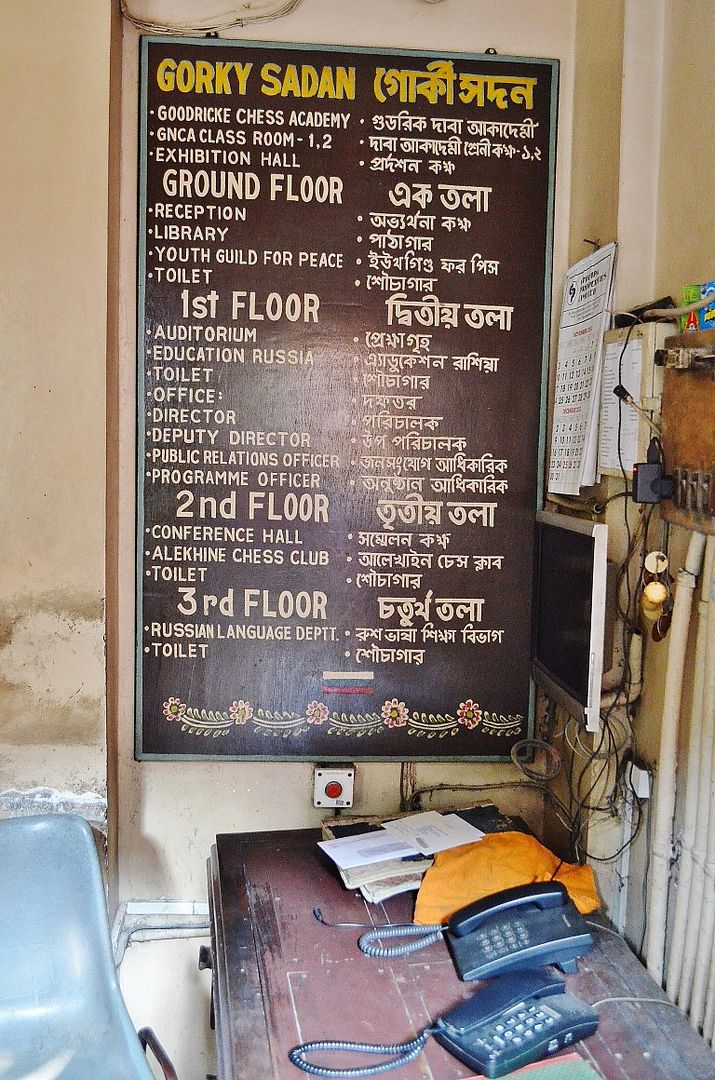 GORKY SADAN গোর্কী সদন
·GOODRICKE CHESS ACADEMY · গুডরিক দাবা আকাদেমী
·GNCA CLASS ROOM-1,2 · দাবা আকাদেমী শ্রেনী কক্ষ-১,২
·EXHIBITION HALL · প্রর্দশন কক্ষ
GROUND FLOOR এক তলা
·RECEPTION · অভ্যর্থনা কক্ষ
·LIBRARY · পাঠাগার
·YOUTH GUILD FOR PEACE · ইউথগিল্ড ফর পিস
·TOILET · শৌচাগার
1st FLOOR দ্বিতীয় তলা
·AUDITORIUM · প্রেক্ষাগৃহ
·EDUCATION RUSSIA · এ্যাডুকেশন রাশিয়া
·TOILET · শৌচাগার
·OFFICE: · দফতর
·DIRECTOR · পরিচালক
·DEPUTY DIRECTOR · উপ পরিচালক
·PUBLIC RELATIONS OFFICER · জনসংযোগ আধিকারিক
·PROGRAMME OFFICER · অনুষ্ঠান আধিকারিক
2nd FLOOR তৃতীয় তলা
·CONFERENCE HALL · সম্মেলন কক্ষ
·ALEKHINE CHESS CLUB · আলেখাইন চেস ক্লাব
·TOILET · শৌচাগার
3rd FLOOR চতুর্থ তলা
·RUSSIAN LANGUAGE DEPTT. · রুশ ভাষা শিক্ষা বিভাগ
·TOILET · শৌচাগার